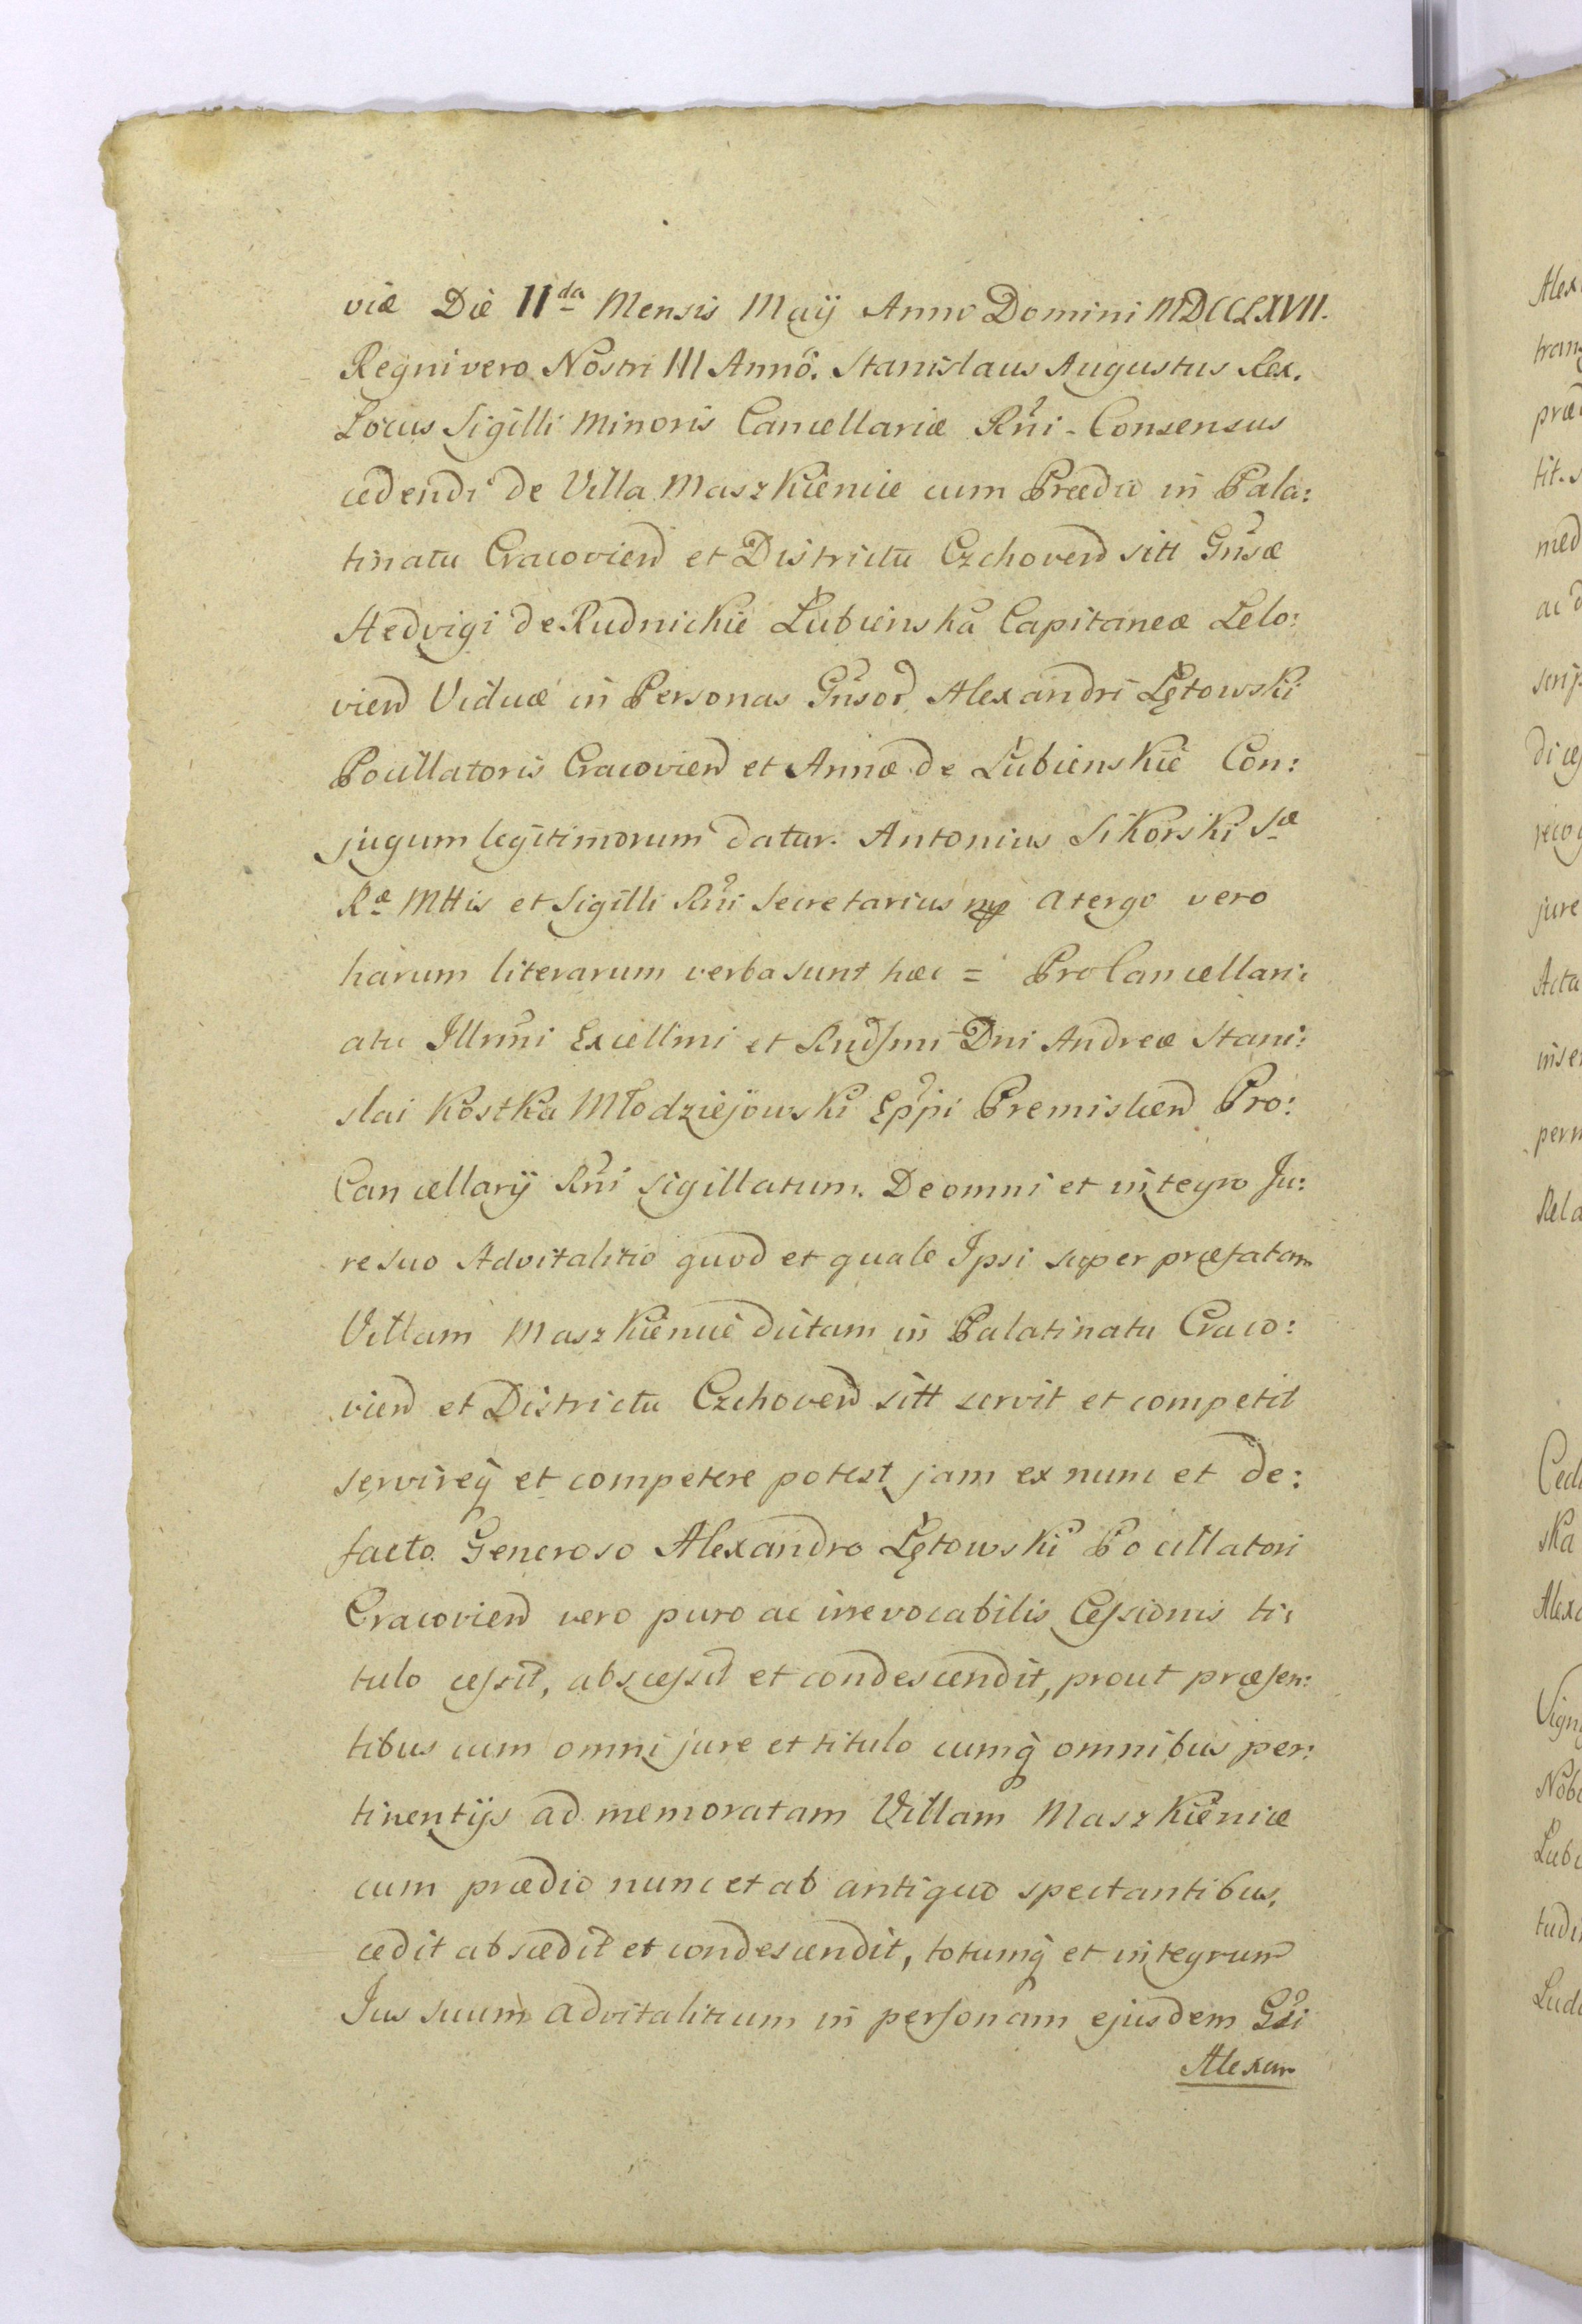 viæ Die IIda Mensis Maÿ Anno Domini MDCCLXVII.
Regni vero Nostri III Anno. Stanislaus Augustus Rex.
Locus Sigilli Minoris Cancellariæ Rni - Consensus
cedendi de Villa Maszkienice cum Prædio in Pala:
tinatu Cracovien et Districtu Czchoven sitt Gnsæ
Hedvigi de Rudnickie Łubienska Capitaneæ Lelo:
vien Viduæ in Personas Gnsor Alexandri Łętowski
Pocillatoris Cracovien et Annæ de Łubienskie Con:
jugum legitimorum datur. Antonius Sikorski Sæ
Ræ Mttis et Sigilli Rni Secretarius mp a tergo vero
harum literarum verba sunt hæc = Pro Cancellari:
atu Illrmi Excellmi et Rndsmi Dni Andreæ Stani:
slai Kostka Młodziejowski Eppi Premislien Pro:
Cancellarÿ Rni sigillatum. De omni et integro Ju:
re suo Advitalitio quod et quale Ipsi super præfatam
Villam Maszkienice dictam in Palatinatu Craco:
vien et Districtu Czchoven sitt servit et competit
servireq et competere potest jam ex nunc et de:
facto Generoso Alexandro Łętowski Pocillatori
Cracovien vero puro ac irrevocabilis Cessionis ti:
tulo cessit, abscessit et condescendit, prout præsen:
tibus cum omni jure et titulo cumq omnibus per:
tinentÿs ad memoratam Villam Maszkienice
cum prædio nunc et ab antiquo spectantibus,
cedit abscedit et condescendit, totumq et integrum
Jus suum advitalitium in personam ejusdem Gsi
Alexan